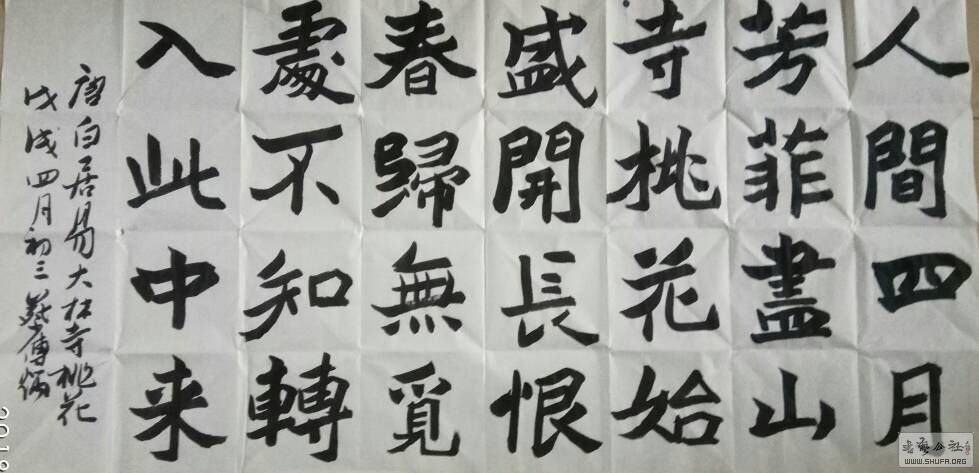 人間四月
芳菲盡山
寺桃花始
盛開長恨
春歸無覓
處不知轉
入此中来
唐白居易大林寺桃花
戊戌四月初三
WWW.SHUFA.ORG